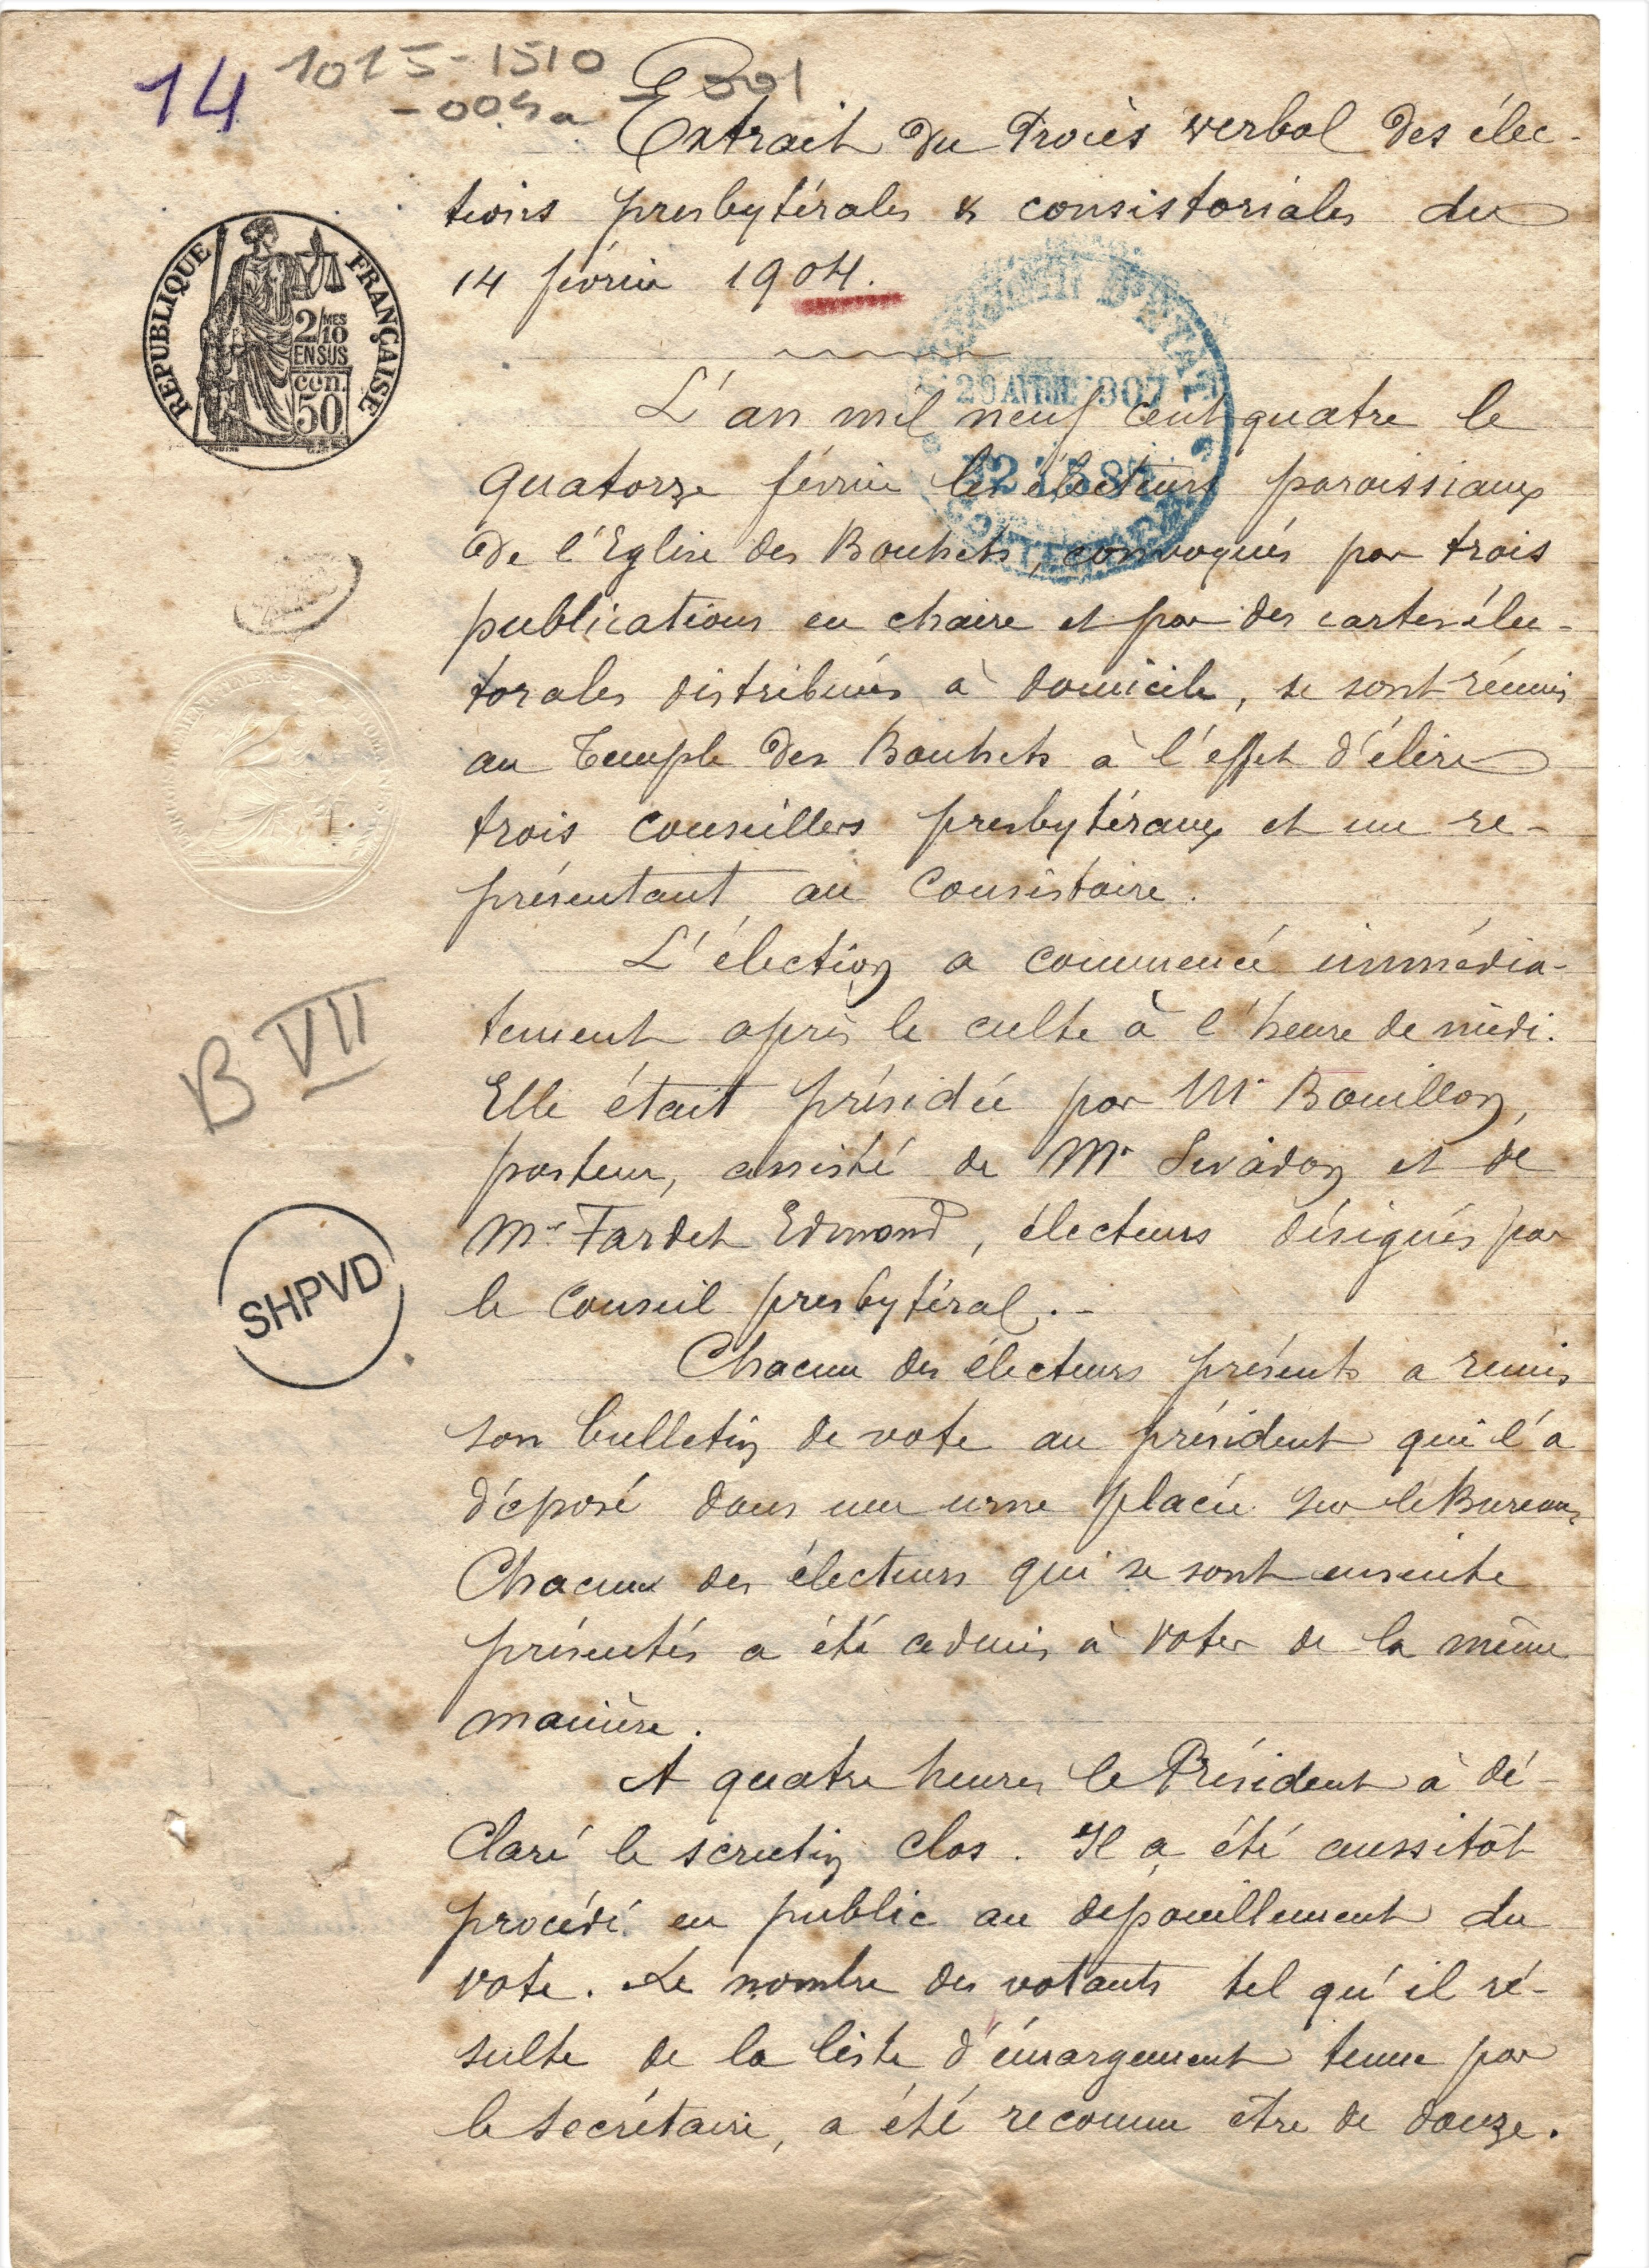 14
1015-1510
-009a - 001
Extrait du Procès verbal des élec-
tions presbytérales & consistoriales du
14 février 1904.
REPUBLIQUE FRANÇAISE
2/MES
10
EN SUS
cen.
50
CONSEIL D'ETAT
29 AVRIL 1907
CONTENTIEUX
L'an mil neuf cent quatre le
quatorze février les électeurs paroissiaux
de l'Eglise des Bouhets, convoqués par trois
publications en chaire et par des cartes élec-
torales distribuées à domicile, se sont réunis
au Temple des Bouhets à l'effet d'élire
trois conseillers presbytéraux et un re-
présentant au Consistoire.
L'élection a commencé immédia-
tement après le culte à l'heure de midi.
Elle était présidée par Mr Bouillon,
pasteur, assisté de Mr Sivadon et de
Mr Fardet Edmond, électeurs désignés par
le Conseil presbytéral.-
B VII
SHPVD
Chacun des électeurs présents a remis
son bulletin de vote au président qui l'a
déposé dans une urne placée sur le Bureau.
Chacun des électeurs qui se sont ensuite
présentés a été admis à voter de la même
manière.
A quatre heures le Président à dé-
claré le scrutin clos. Il a été aussitôt
procédé en public au dépouillement du
vote. Le nombre des votants tel qu'il ré-
sulte de la liste d'émargement tenue par
le secrétaire, a été reconnu être de douze.